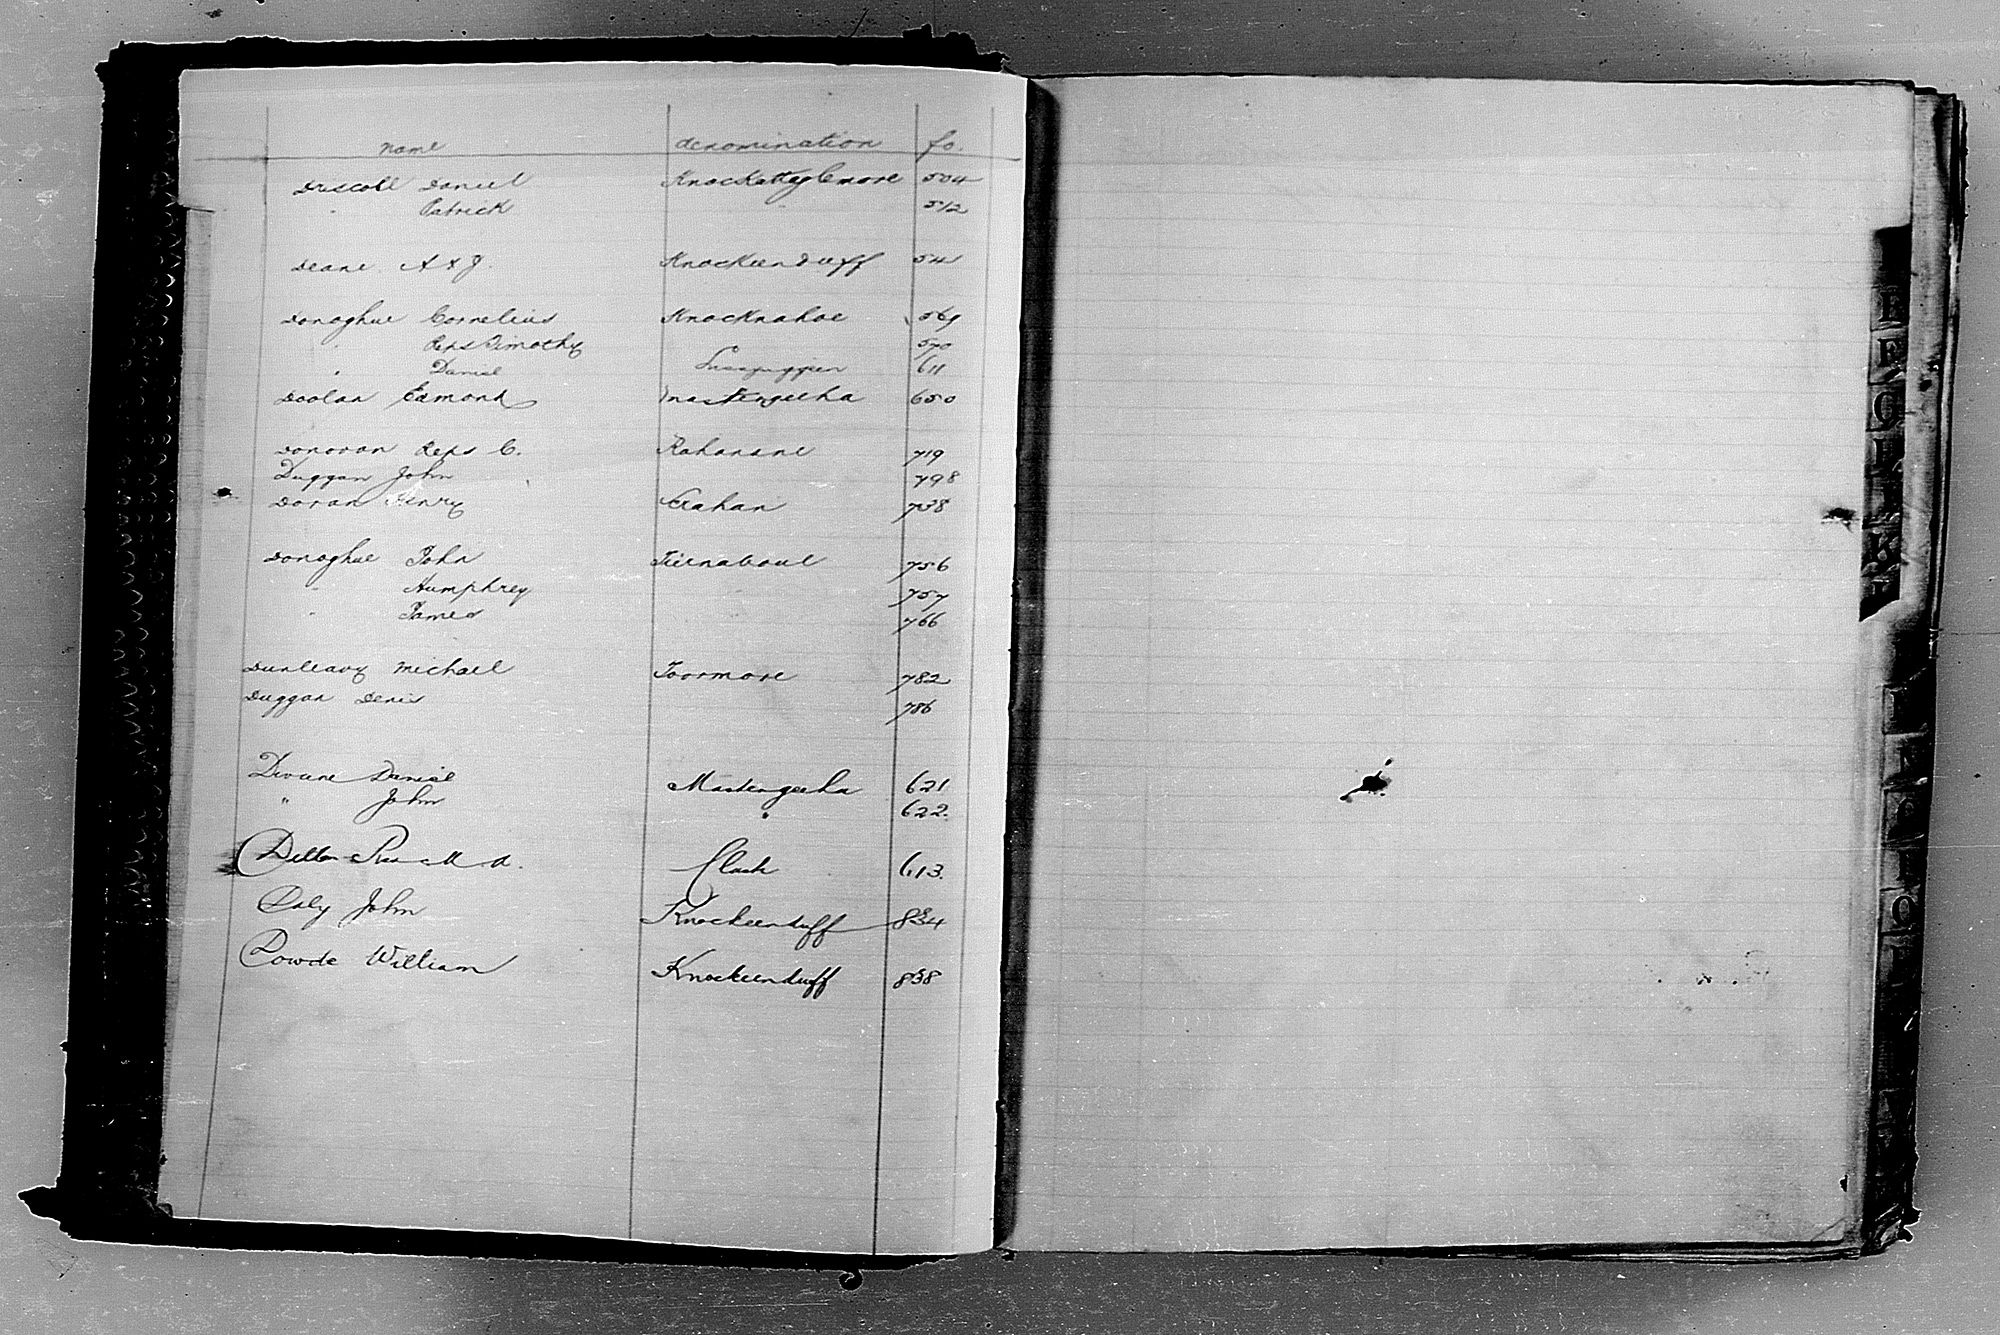 name denomination fo.
Driscoll Daniel Knockattaglemore 504
" Patrick " 512
Deane A & J. Knockeenduff 541
Donoghue Cornelius Knocknahoe 569
" Reps Timothy 570
" Daniel 611
Doolan Edmond Mastergeeha 650
Donovan Reps C. Rahanane 719
Duggan John 798
Doran Henry 738
Donoghue John Tiernaboul 756
" Humphrey " 757
" James 766
Dunleavy Michael Toormore 782
Duggan Denis 786
Devane Daniel Mastergeeha 621
" John " 622.
Dillon 613.
Daly John Knockeenduff 834
Dowde William Knockeenduff 838